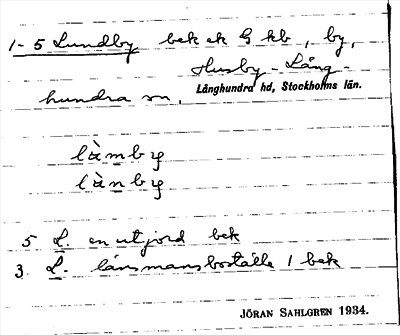 1-5 Lundby bek ek G kb, by,
Husby-Lång-
hundra sn,
Långhundra hd, Stockholms län.
làmby
lànby
5 L. en utjord bek
3. L. länsmansboställe 1 bek
JÖRAN SAHLGREN 1934.